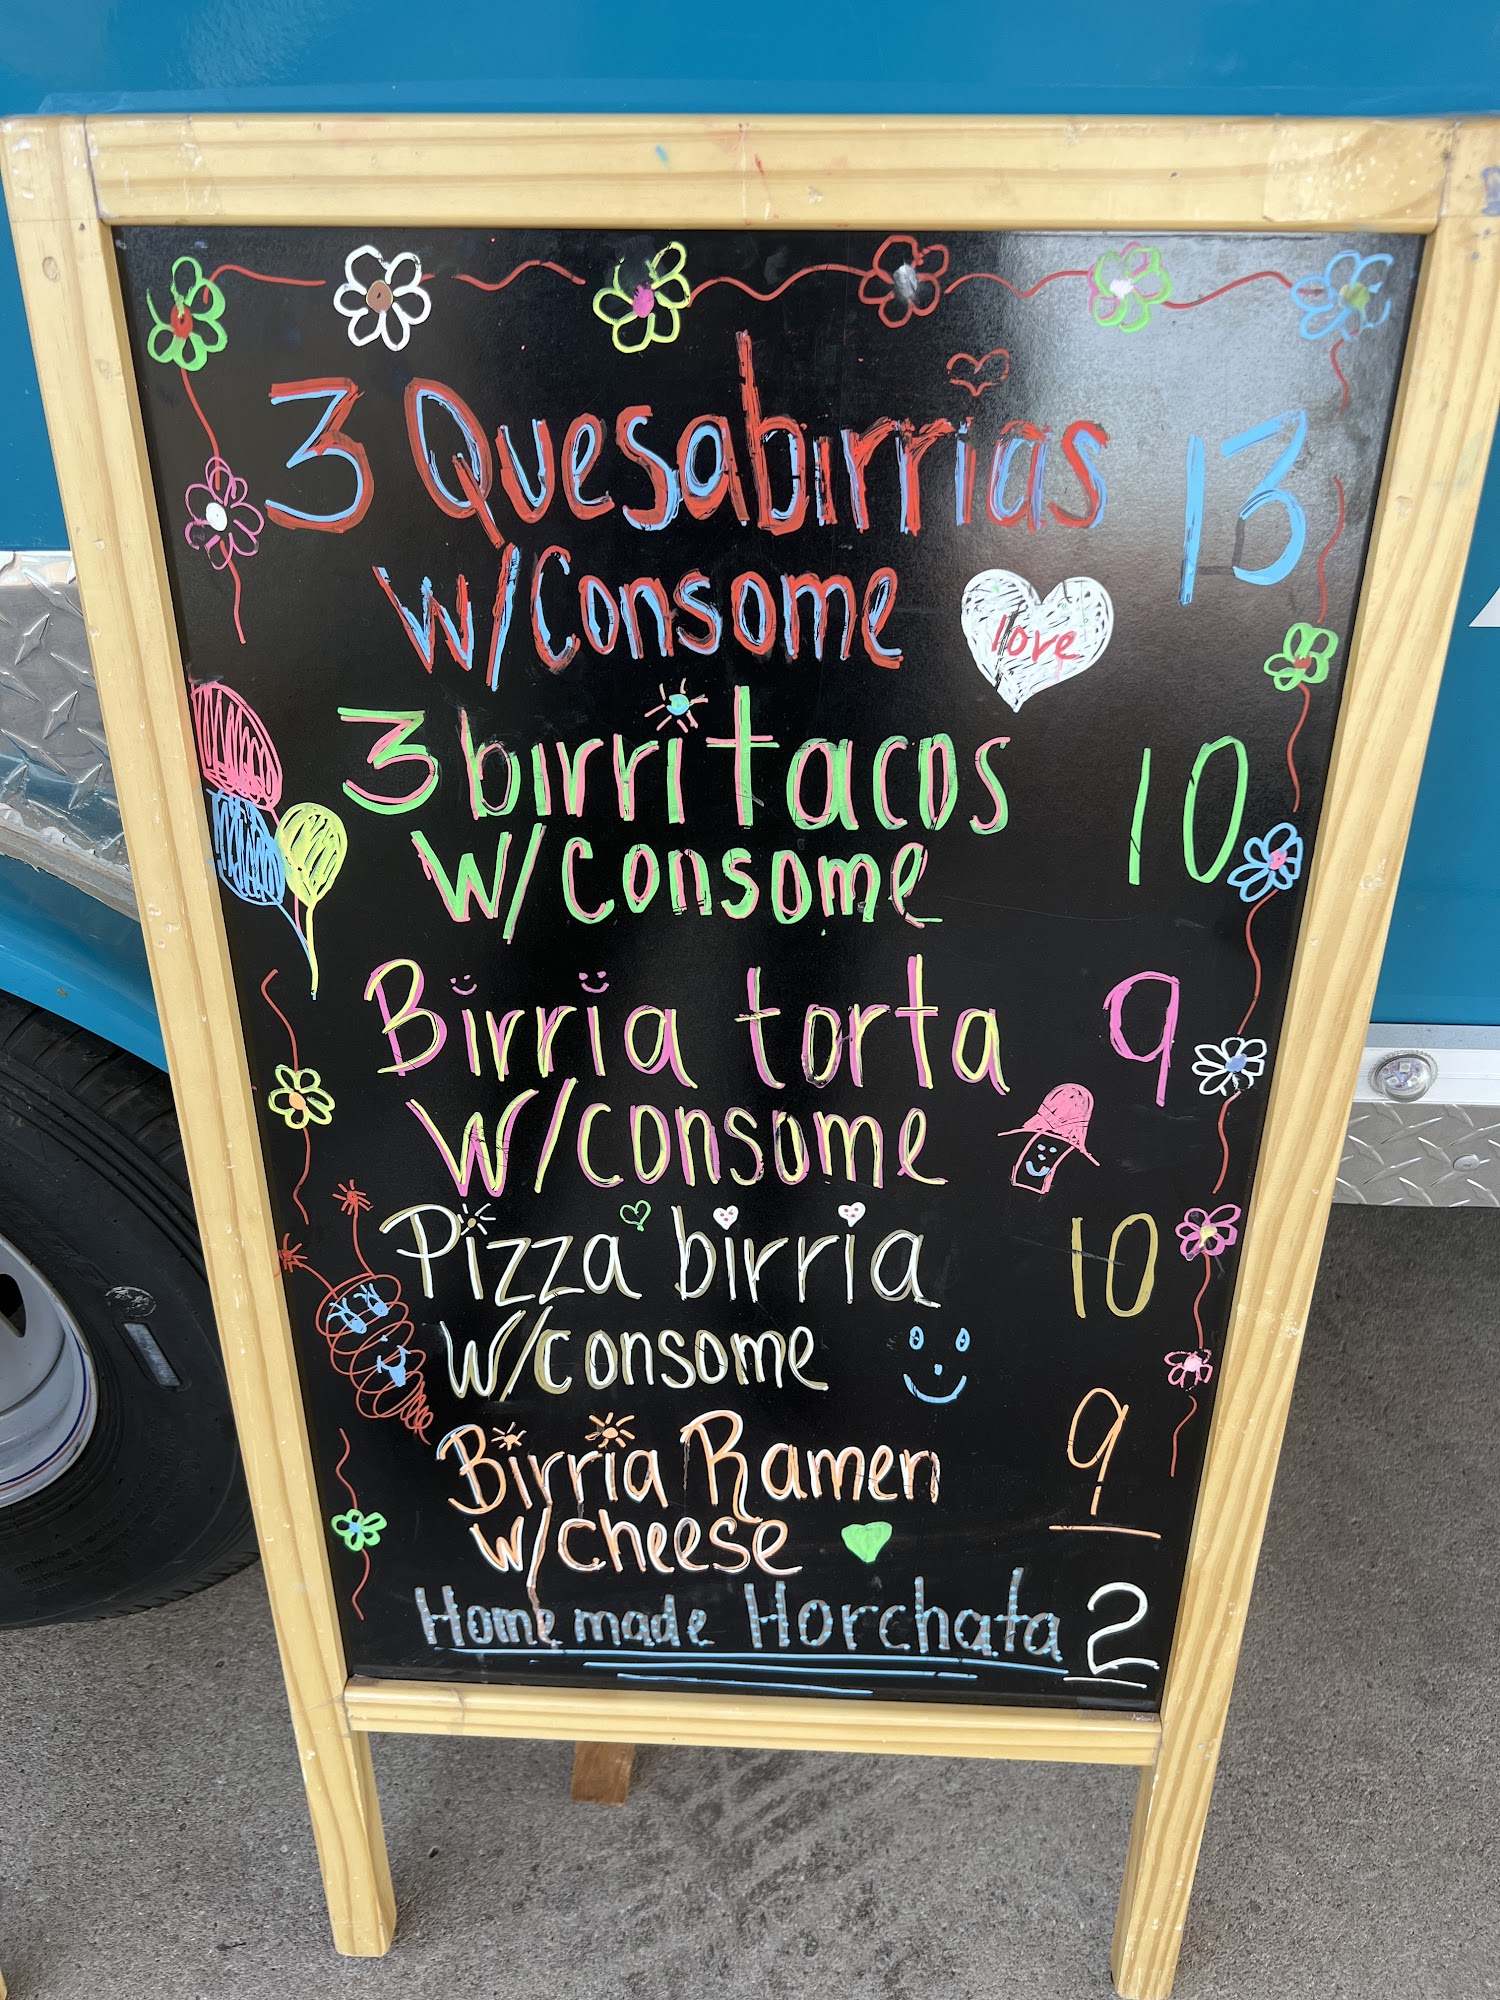 3 Quesabirrias 13
w/Consome love
3 birri tacos 10
w/consome
Birria torta 9
w/consome
Pizza birria 10
w/consome
Birria Ramen 9
w/cheese
Home made Horchata 2